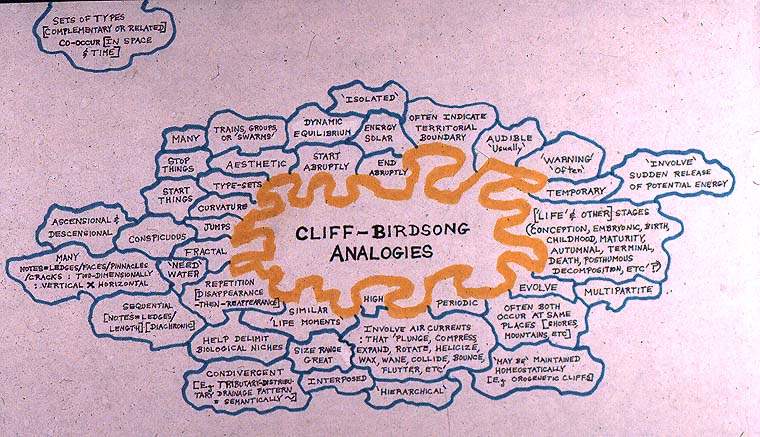 SETS OF TYPES
[COMPLEMENTARY OR RELATED]
CO-OCCUR [IN SPACE
& TIME]
'ISOLATED'
MANY
TRAINS, GROUPS,
OR 'SWARMS'
DYNAMIC
EQUILIBRIUM
ENERGY
SOLAR
OFTEN INDICATE
TERRITORIAL
BOUNDARY
AUDIBLE
'Usually'
'WARNING'
'Often'
'INVOLVE'
SUDDEN RELEASE
OF POTENTIAL ENERGY
STOP
THINGS
AESTHETIC
START
ABRUPTLY
END
ABRUPTLY
TEMPORARY
START
THINGS
TYPE-SETS
CURVATURE
ASCENSIONAL &
DESCENSIONAL
CONSPICUOUS
JUMPS
FRACTAL
CLIFF-BIRDSONG
ANALOGIES
['LIFE' & OTHER] STAGES
(CONCEPTION, EMBRYONIC, BIRTH,
CHILDHOOD, MATURITY,
AUTUMNAL, TERMINAL,
DEATH, POSTHUMOUS
DECOMPOSITION, ETC ?)
MANY
NOTES=LEDGES/FACES/PINNACLES
/CRACKS : TWO-DIMENSIONALLY
: VERTICAL X HORIZONTAL
'NEED'
WATER
REPETITION
[DISAPPEARANCE
-THEN-REAPPEARANCE]
SIMILAR
'LIFE MOMENTS'
HIGH
PERIODIC
EVOLVE
MULTIPARTITE
SEQUENTIAL
[NOTES=LEDGES/
LENGTH] [DIACHRONIC]
HELP DELIMIT
BIOLOGICAL NICHES
SIZE RANGE
GREAT
INVOLVE AIR CURRENTS
: THAT 'PLUNGE, COMPRESS,
EXPAND, ROTATE, HELICIZE,
WAX, WANE, COLLIDE, BOUNCE,
FLUTTER, ETC'
OFTEN BOTH
OCCUR AT SAME
PLACES [SHORES,
MOUNTAINS, ETC]
CONDIVERGENT
[E.g. TRIBUTARY-DISTRIBU-
TARY DRAINAGE PATTERN
= SEMANTICALLY ~]
INTERPOSED
'HIERARCHICAL'
'MAY BE' MAINTAINED
HOMEOSTATICALLY
[E.g. OROGENETIC CLIFFS]